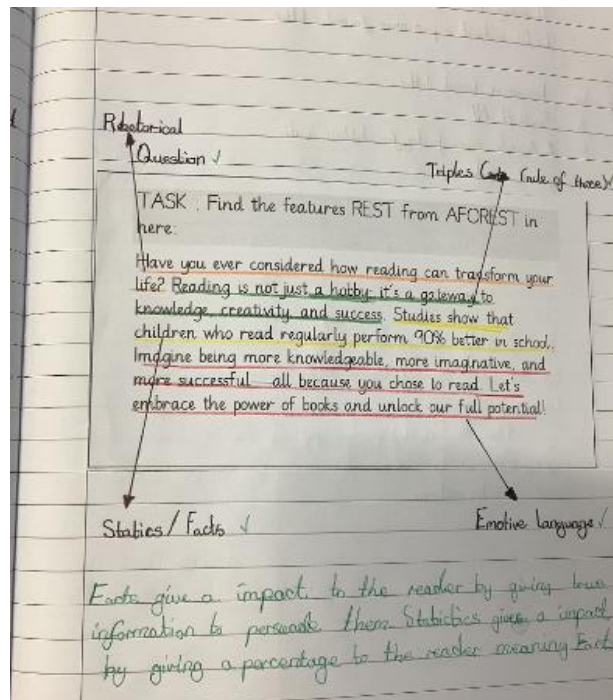 Rhetorical
Question ✓
Triples (rule of three)✓
TASK : Find the features REST from AFOREST in
here:
Have you ever considered how reading can transform your
life? Reading is not just a hobby it's a gateway to
knowledge, creativity, and success. Studies show that
children who read regularly perform 90% better in school.
Imagine being more knowledgeable, more imaginative, and
more successful all because you chose to read. Let's
embrace the power of books and unlock our full potential!
Statics / Facts ✓
Emotive language ✓
Facts give a impact to the reader by giving true
information to persuade them Statictics gives a impact
by giving a percentage to the reader meaning Fact